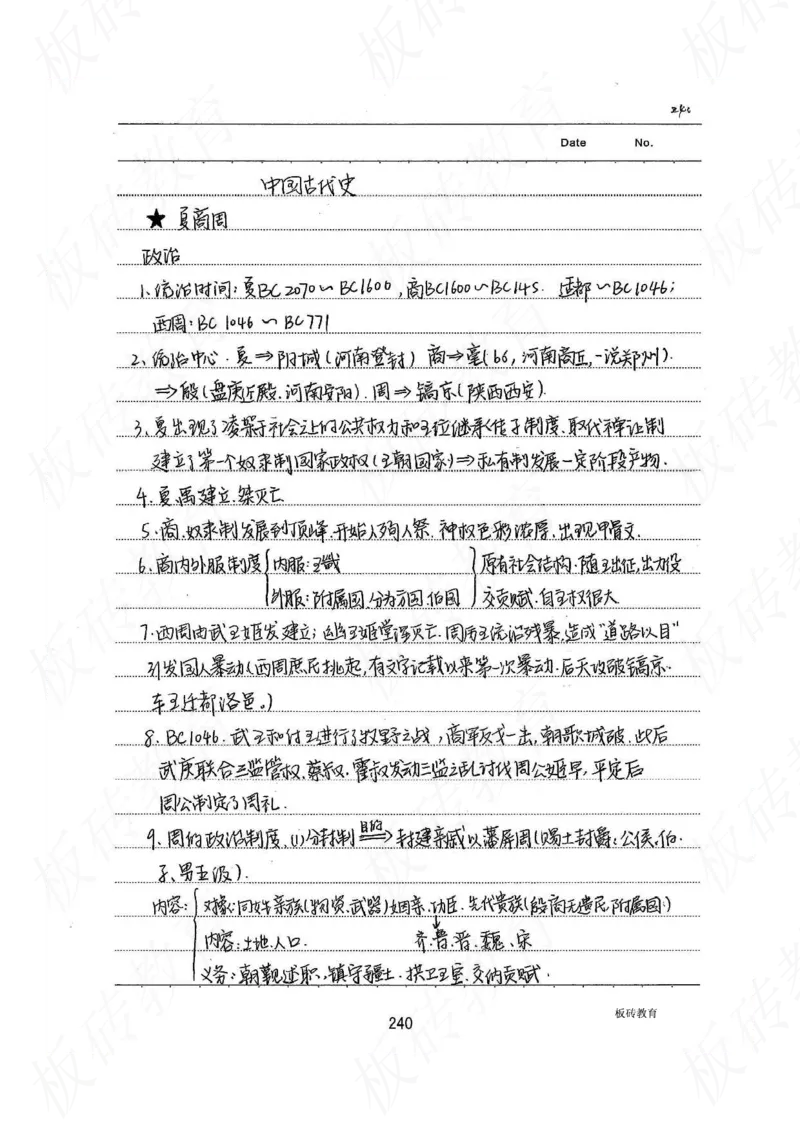 Date No.
中国古代史
★ 夏商周
政治
1、统治时间：夏BC2070~BC1600，商BC1600~BC1145. 迁都~BC1046；
西周：BC 1046 ~ BC771
2、统治中心. 夏⇒阳城(河南登封) 商⇒亳(bó，河南商丘,一说郑州).
⇒殷(盘庚迁殷.河南安阳). 周⇒镐京(陕西西安).
3、夏出现了凌驾于社会之上的公共权力和王位继承传子制度、取代禅让制
建立了第一个奴隶制国家政权(王朝国家)⇒私有制发展一定阶段产物.
4、夏.禹建立.桀灭亡
5、商.奴隶制发展到顶峰.开始人殉人祭. 神权色彩浓厚、出现甲骨文.
6、商内外服制度 内服：王畿 原有社会结构.随王出征、出力役
外服：附属国.分为方国.伯国 交贡赋.自主权很大
7、西周由武王姬发建立；幽王姬宫湦灭亡.周厉王统治残暴,造成"道路以目"
引发国人暴动(西周庶民挑起，有文字记载以来第一次暴动.后犬戎破镐京.
车王迁都洛邑。)
8、BC1046. 武王和纣王进行了牧野之战，商军反戈一击,朝歌城破.此后
武庚联合三监管叔、蔡叔、霍叔发动三监之乱讨伐周公姬旦,平定后
周公制定了周礼.
9、周的政治制度.(1)分封制 目的⇒ 封建亲戚以藩屏周(赐土封爵：公侯、伯.
子、男五级).
内容： 对象：同姓亲族(物资、武器)姻亲、功臣、先代贵族(殷商元遗民.附属国.)
内容：土地人口. 齐.鲁.晋、魏、宋
义务：朝觐述职、镇守疆土、拱卫王室、交纳贡赋.
240
板砖教育